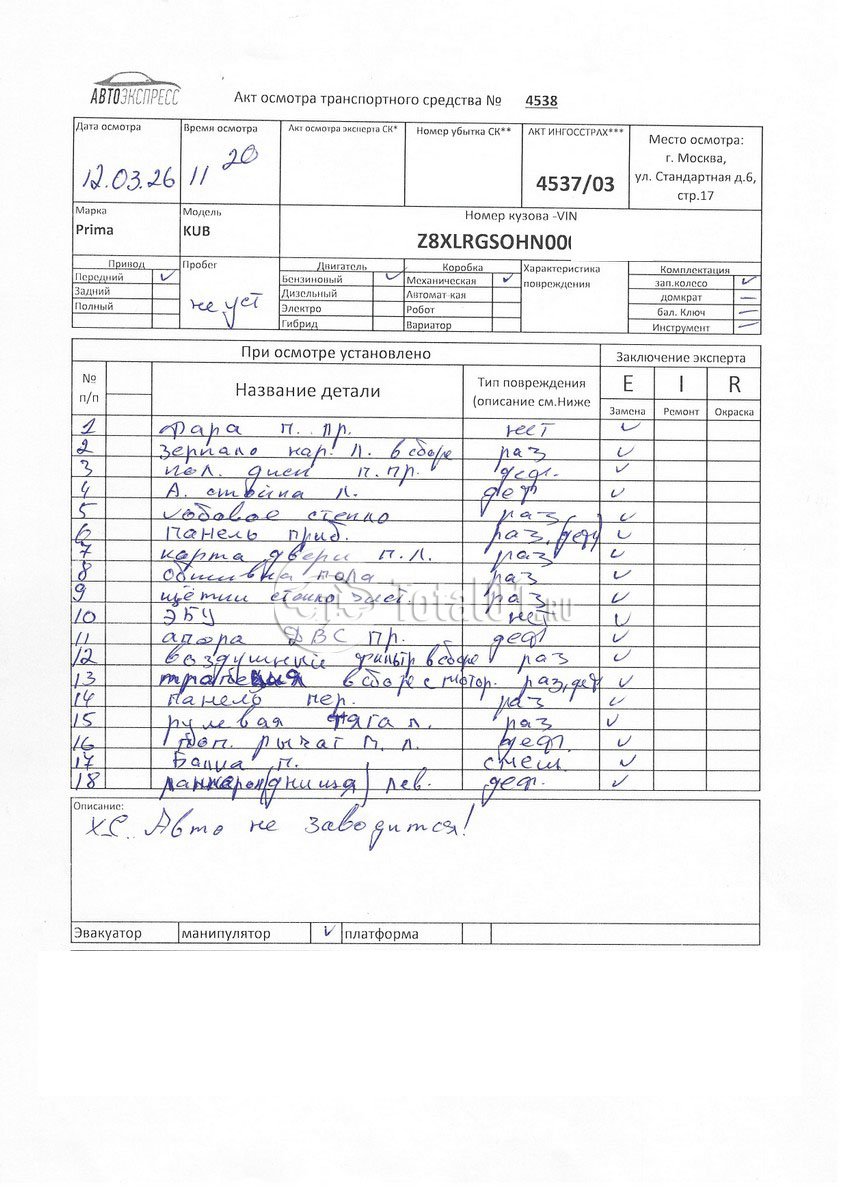 АВТОЭКСПРЕСС
Акт осмотра транспортного средства № 4538
Дата осмотра Время осмотра Акт осмотра эксперта СК* Номер убытка СК** АКТ ИНГОССТРАХ*** Место осмотра:
г. Москва,
12.03.26 11 20 4537/03 ул. Стандартная д.6,
стр.17
Марка Модель Номер кузова -VIN
Prima KUB Z8XLRGSOHN00
Привод Пробег Двигатель Коробка Характеристика Комплектация
Передний ✓ Бензиновый ✓ Механическая ✓ повреждения зап.колесо ✓
Задний не уст Дизельный Автомат-кая домкрат —
Полный Электро Робот бал. Ключ —
Гибрид Вариатор Инструмент —
При осмотре установлено Заключение эксперта
№ Название детали Тип повреждения E I R
п/п (описание см.Ниже Замена Ремонт Окраска
1 Фара п. пр. нет ✓
2 Зеркало нар. л. в сборе раз ✓
3 кол. диск п.пр. деф. ✓
4 А. стойка л. деф ✓
5 Лобовое стекло раз ✓
6 Панель приб. раз, (деф) ✓
7 карта двери п.л. раз ✓
8 обшивка пола раз ✓
9 щётки стекло раз ✓
10 ЭБУ нет ✓
11 апора ДВС пр. деф ✓
12 воздушный фильтр в сборе раз ✓
13 трапеция в сборе с мотор. раз, деф ✓
14 панель пер. раз ✓
15 рулевая тяга л. раз ✓
16 поп. рычаг п. л. деф. ✓
17 Балка п. смещ. ✓
18 (днища) лев. деф. ✓
Total01.RU
Описание:
Х.С. Авто не заводится!
Эвакуатор манипулятор ✓ платформа